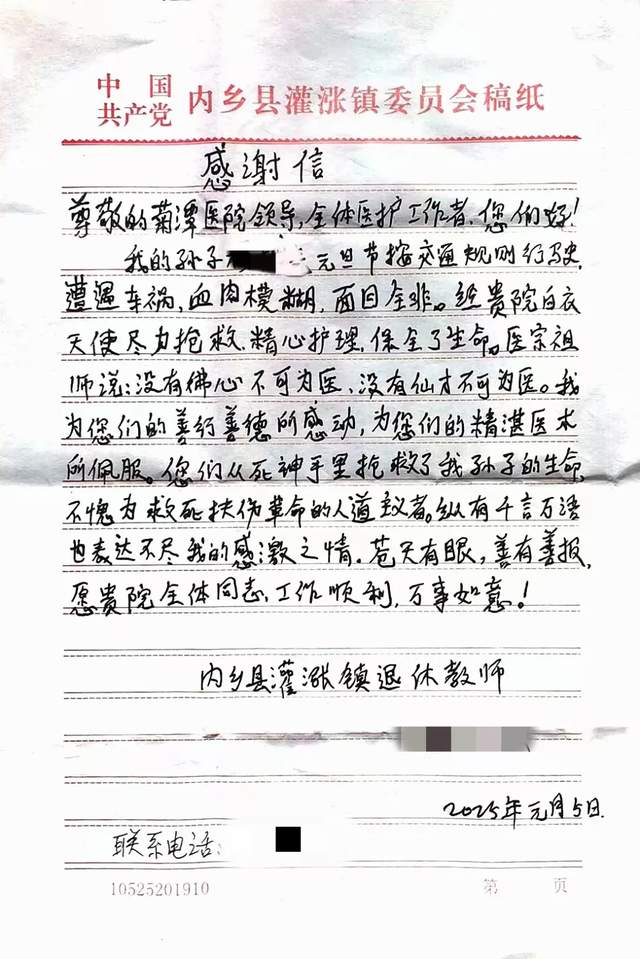 中国
共产党
内乡县灌涨镇委员会稿纸
感谢信
尊敬的菊潭医院领导,全体医护工作者,您们好!
我的孙子 元旦节按交通规则行驶,
遭遇车祸,血肉模糊,面目全非。经贵院白衣
天使尽力抢救、精心护理,保全了生命。医宗祖
师说:没有佛心不可为医、没有仙才不可为医。我
为您们的善行善德所感动,为您们的精湛医术
所佩服。您们从死神手里抢救了我孙子的生命,
不愧为救死扶伤革命的人道主义者。纵有千言万语
也表达不尽我的感激之情。苍天有眼,善有善报,
愿贵院全体同志,工作顺利,万事如意!
内乡县灌涨镇退休教师
2025年元月5日.
联系电话:
10525201910
第 页